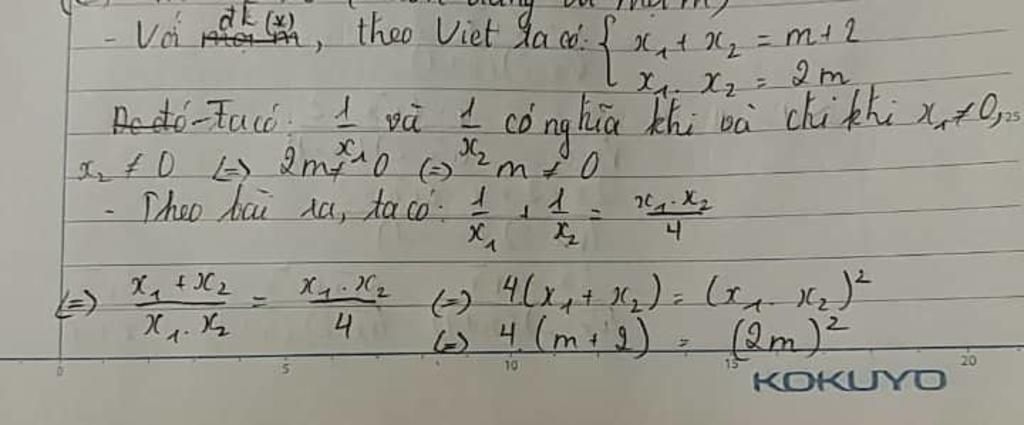 - Với đk (x), theo Viet ta có: { x₁ + x₂ = m + 2
x₁. x₂ = 2m
Do đó - Ta có: 1/x₁ và 1/x₂ có nghĩa khi và chỉ khi x₁ ≠ 0, 25
x₂ ≠ 0 (=) 2m ≠ 0 (=) m ≠ 0
- Theo bài ra, ta có: 1/x₁ + 1/x₂ = x₁. x₂/4
(=) x₁ + x₂/x₁. x₂ = x₁. x₂/4 (=) 4(x₁ + x₂) = (x₁. x₂)²
(=) 4. (m + 2) = (2m)²
0 5 10 15 20
KOKUYO